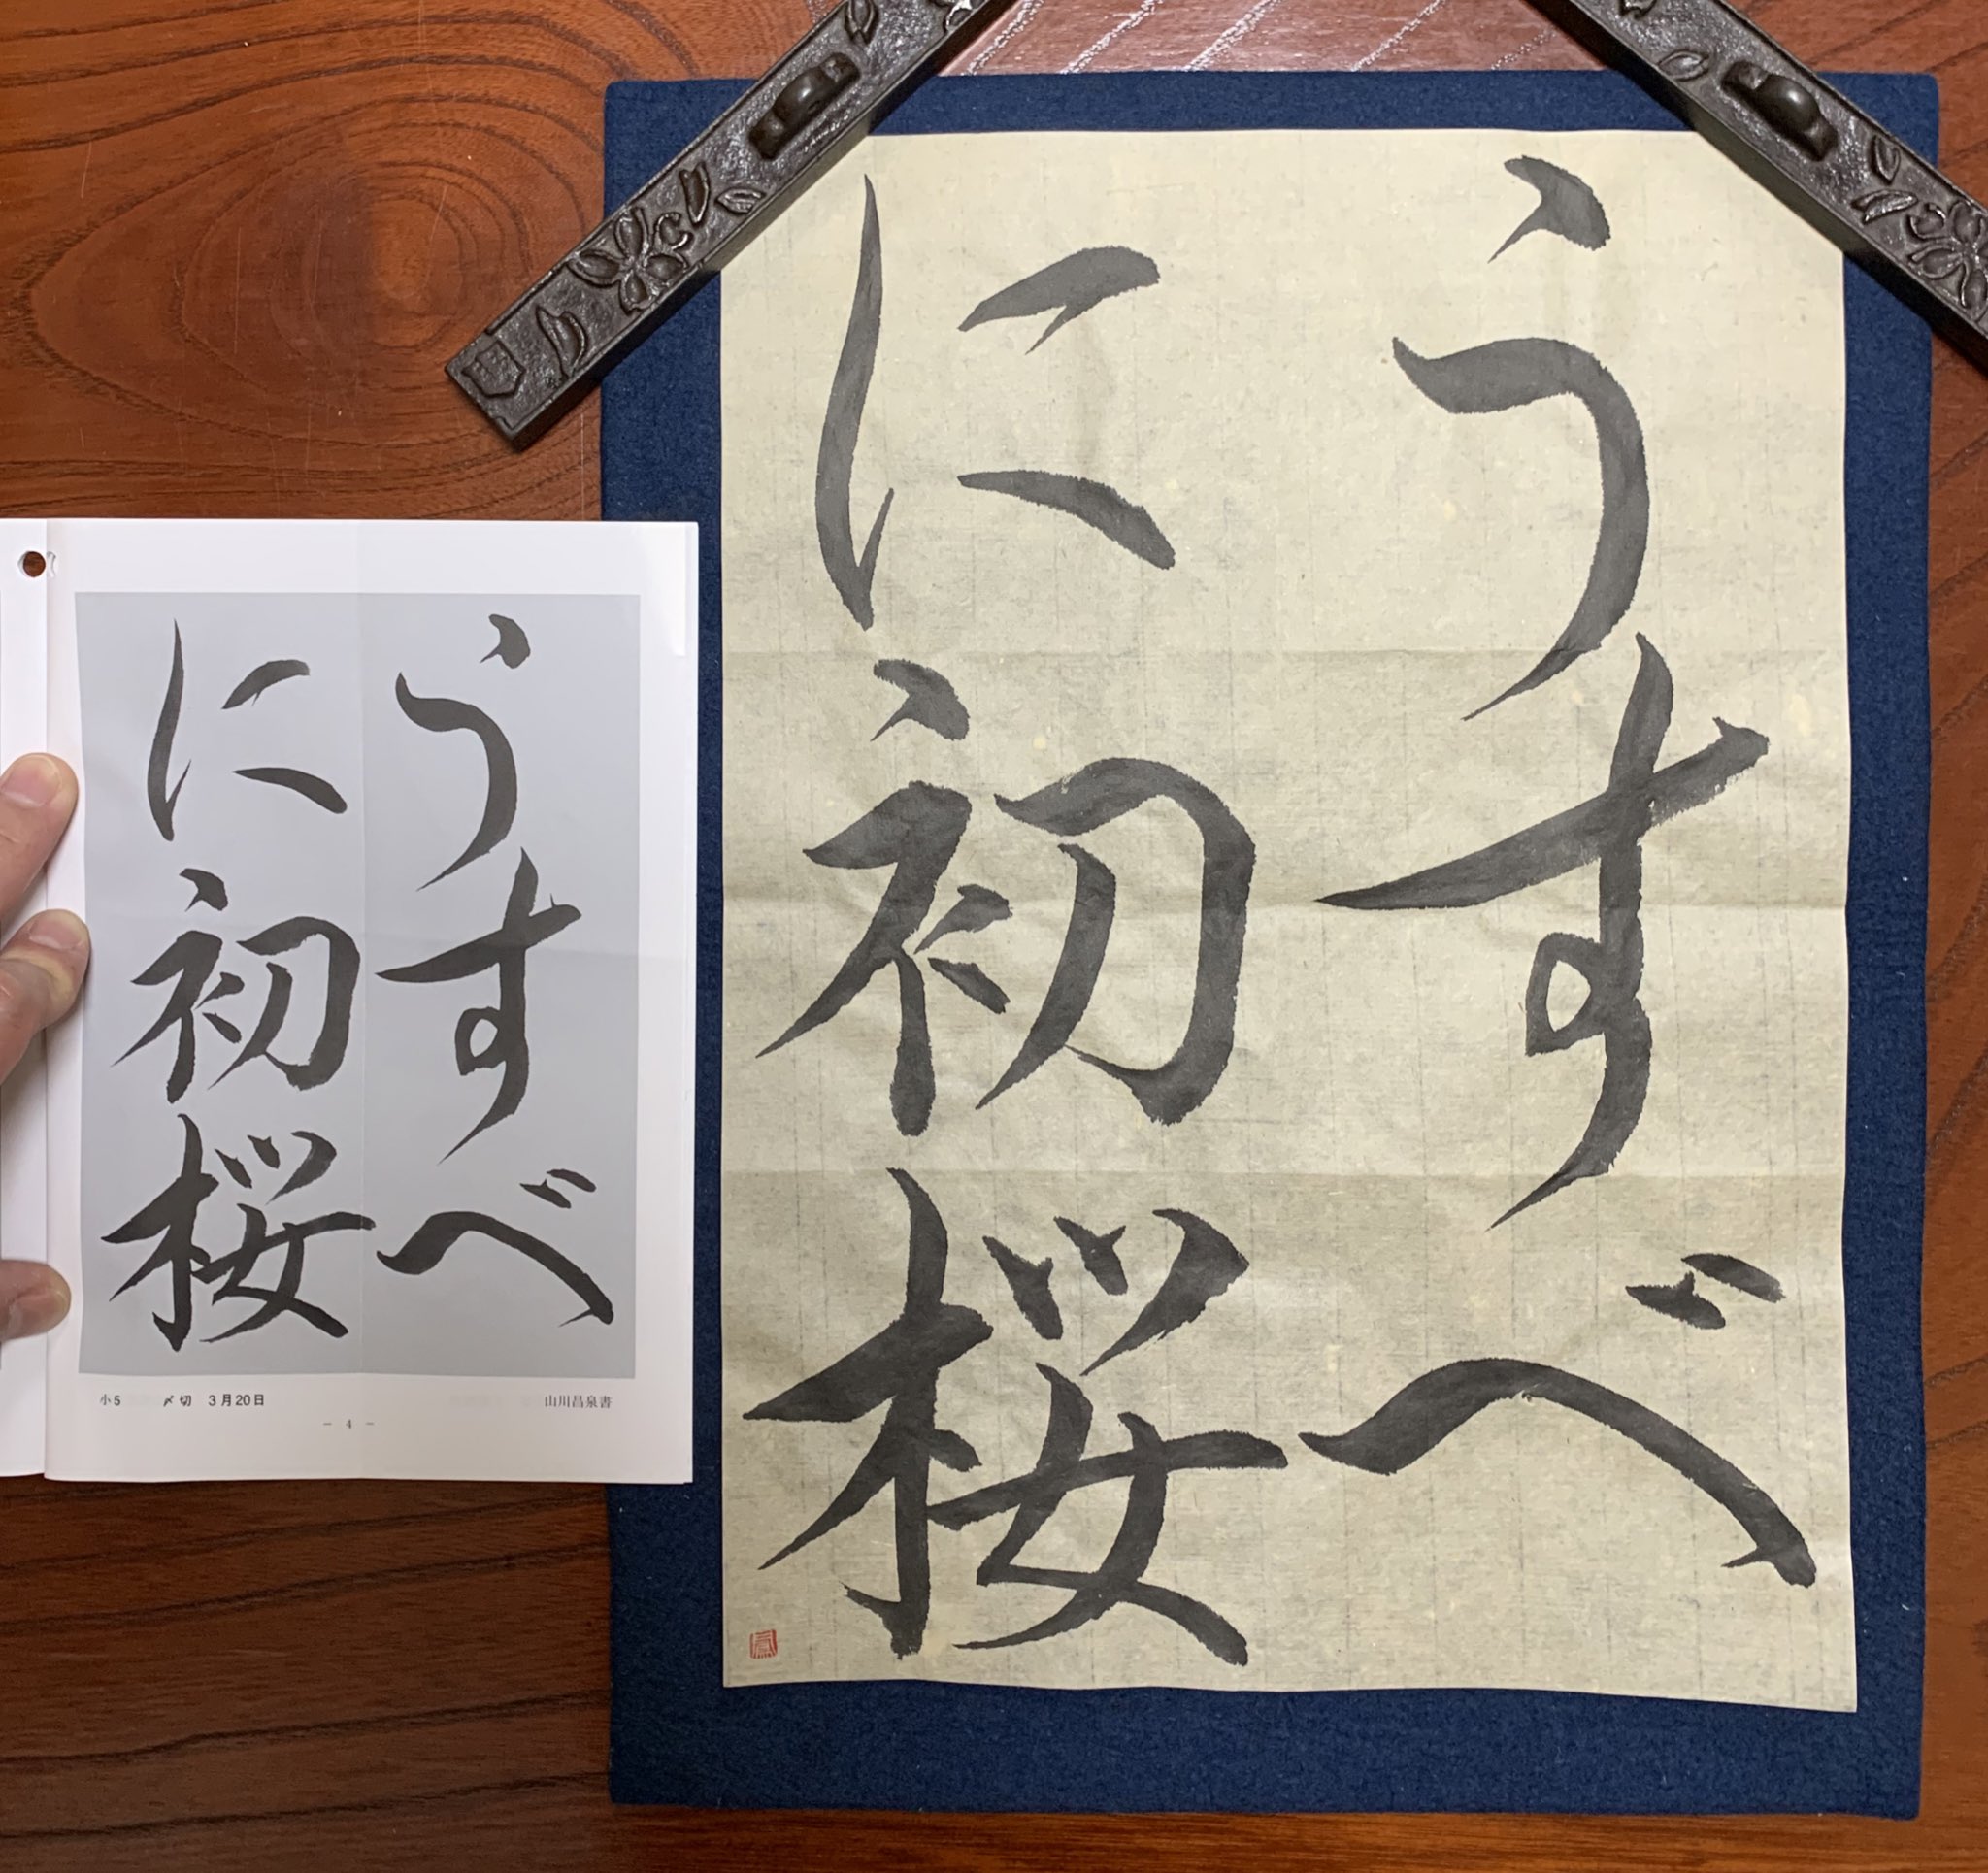 うすべ
に初桜
うすべ
に初桜
小5 〆切 3月20日
山川昌泉書
− 4 −